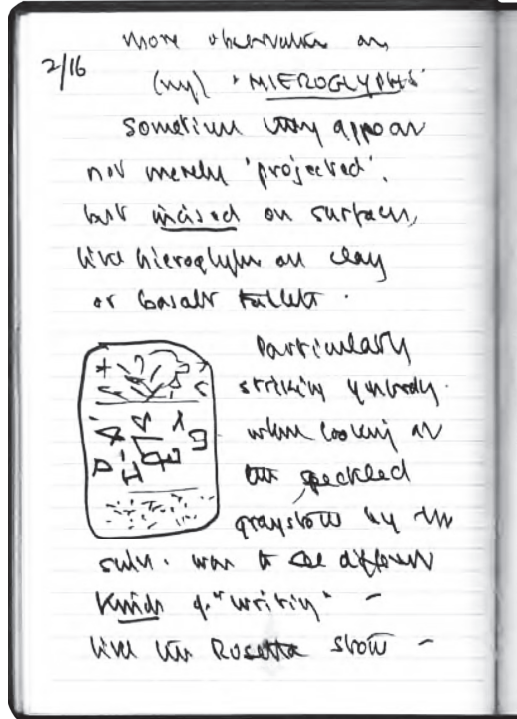 2/16
More observation on
(my) "HIEROGLYPHS"
Sometimes they appear
not merely 'projected',
but incised on surfaces,
like hieroglyphs on clay
or basalt tablets.
Particularly
striking yesterday
when looking at
the speckled
graystone by the
was to see different
kinds of "writing" -
like the Rosetta stone -